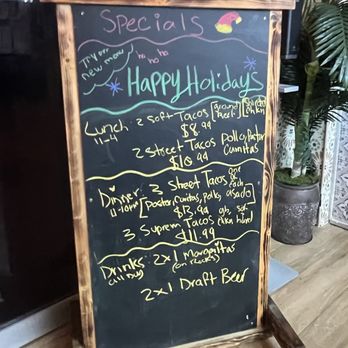 Specials
Try our new menu
ho ho ho
Happy Holidays
Lunch: 2 Soft Tacos [Ground Beef] [Shredded
11-4 $8.99
2 Street Tacos Pollo, Pastor
$10.99 Carnitas
Dinner: 3 Street Tacos one each
[Pastor, Carnitas, Pollo, asado]
$13.99
3 Suprem Tacos
$11.99
Drinks: 2x1 Margaritas
all Day (on Rocks)
2x1 Draft Beer